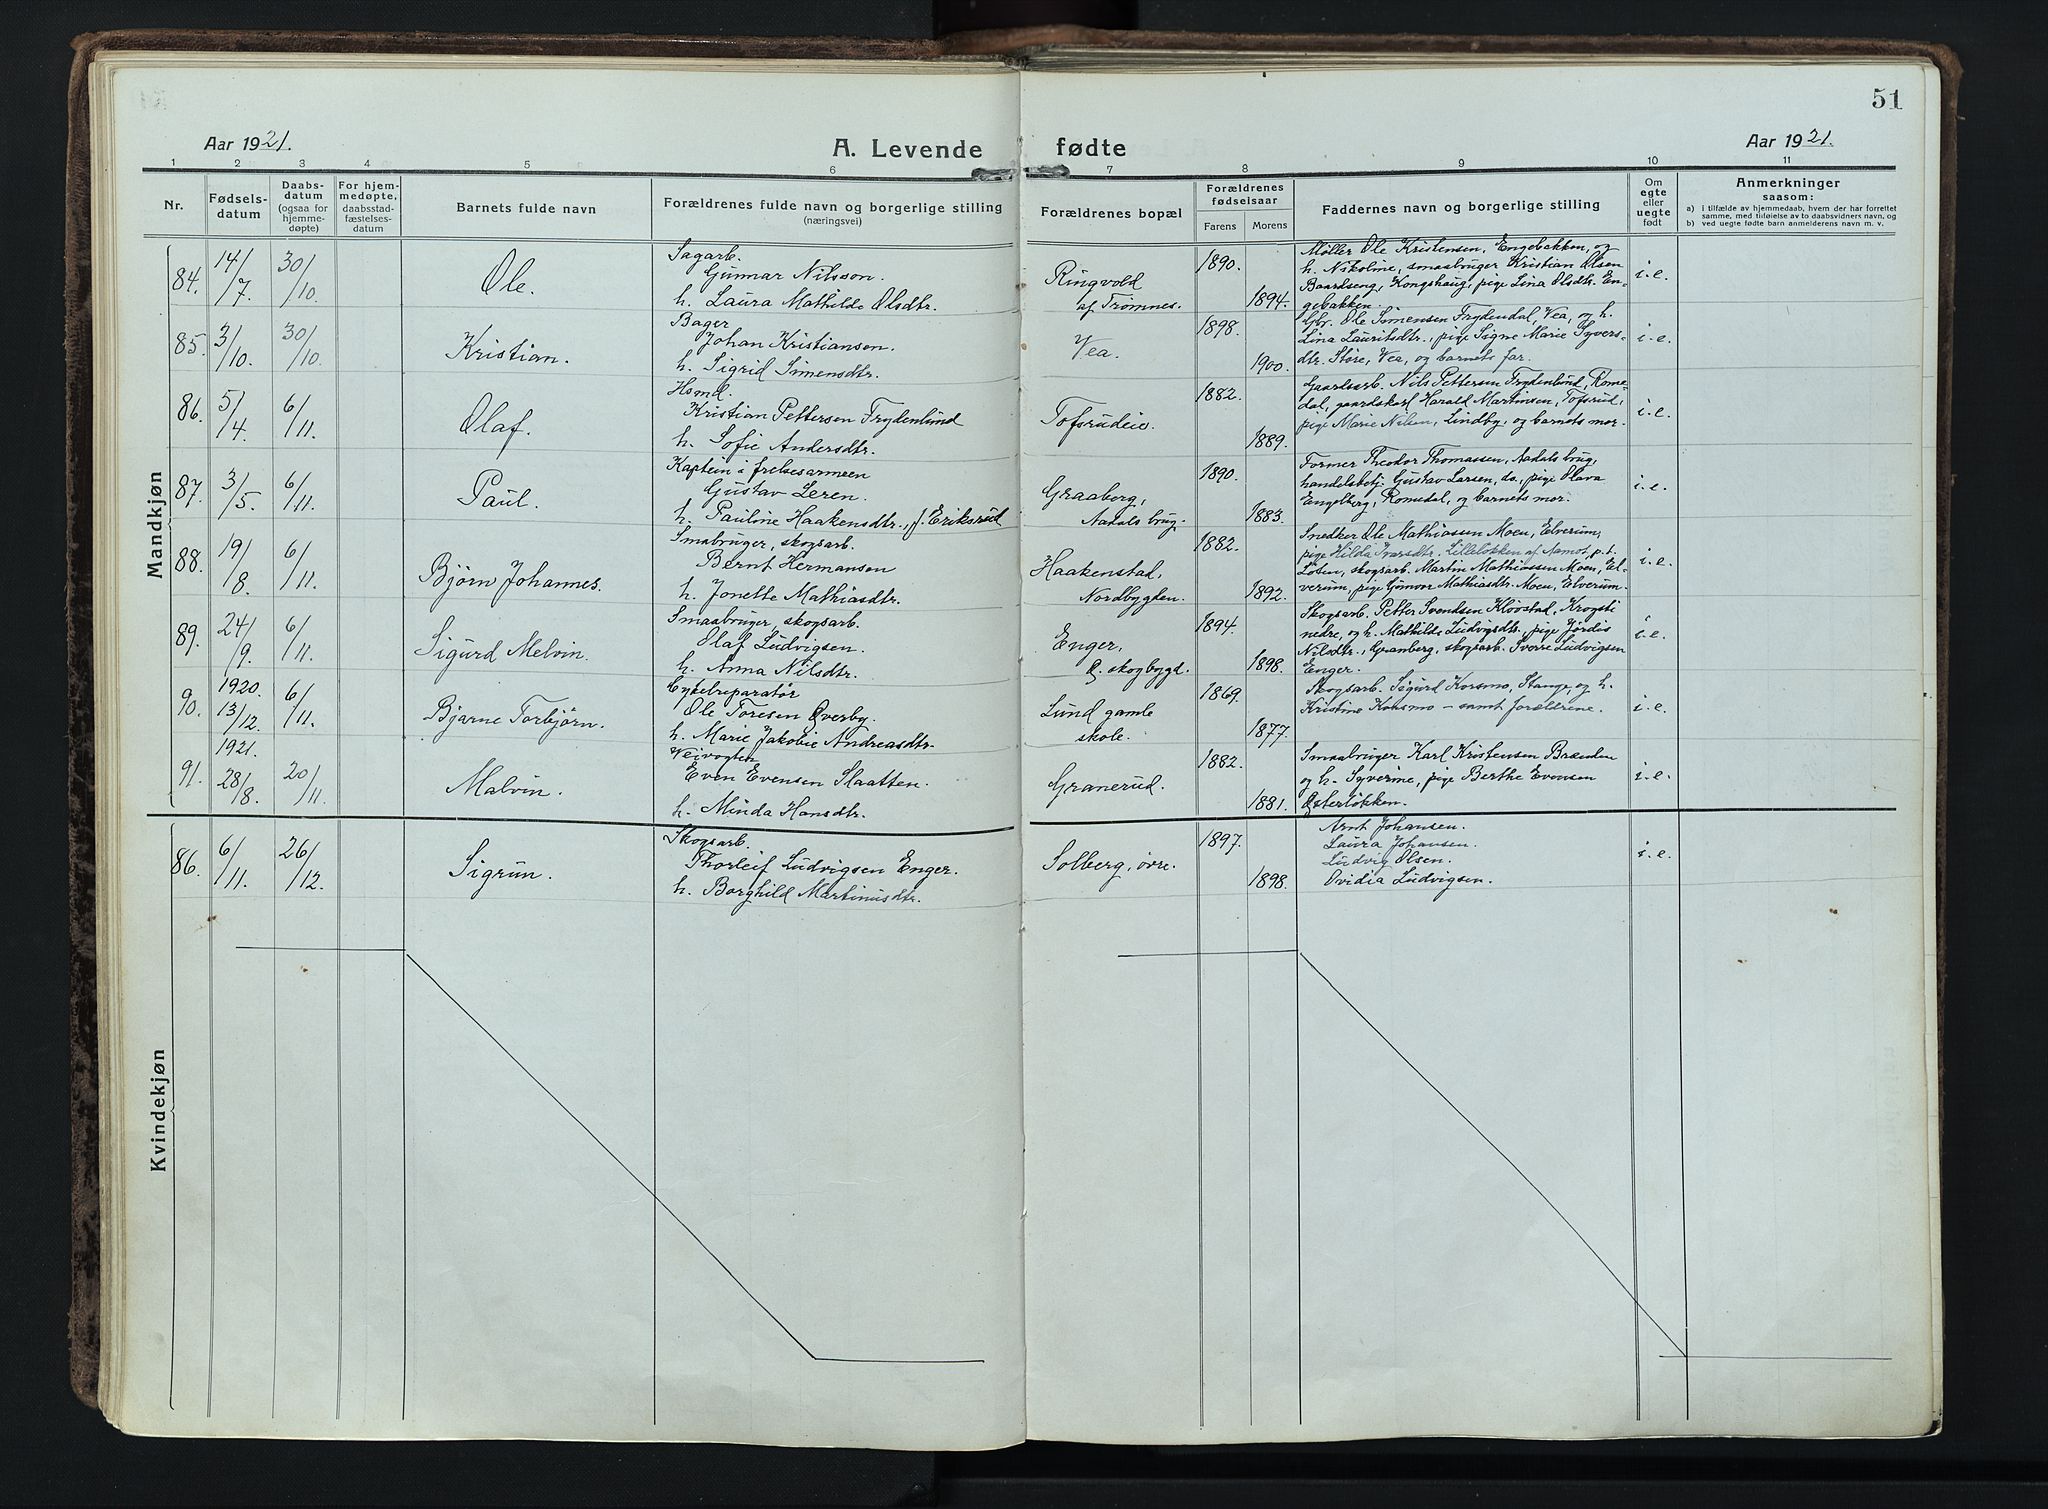 51
Aar 1921.
A. Levende fødte
Aar 1921.
1 2 3 4 5 6 7 8 9 10 11
Nr.
Fødsels-
datum
Daabs-
datum
(ogsaa for
hjemme-
døpte)
For hjem-
medøpte,
daabsstad-
fæstelses-
datum
Barnets fulde navn
Forældrenes fulde navn og borgerlige stilling
(næringsvei)
Forældrenes bopæl
Forældrenes
fødselsaar
Farens Morens
Faddernes navn og borgerlige stilling
Om
egte
eller
uegte
født
Anmerkninger
saasom:
a) i tilfælde av hjemmedaab, hvem der har forrettet
samme, med tilføielse av to daabsvidners navn, og
b) ved uegte fødte barn anmelderens navn m. v.
Mandkjøn
84. 14/7 30/10 Ole.
Sagarb.
Gunnar Nilsson.
h. Laura Mathilde Olsdtr.
Ringvold
af Trømnes.
1890.
1894.
Møller Ole Kristensen, Engebakken, og
h. Nikoline, smaabruger Kristian Olsen
Baardseng, Kongshaug, pige Lina Olsdtr. En-
gebakken.
i.e.
85. 3/10 30/10 Kristian.
Bager
Johan Kristiansen.
h. Sigrid Simensdtr.
Vea.
1898.
1900.
Gbr. Ole Simensen Frydendal, Vea, og h.
Lina Lauritsdtr., pige Signe Marie Syvers-
dtr. Støre, Vea, og barnets far.
i.e.
86. 5/4 6/11. Olaf.
Hsmd.
Kristian Pettersen Frydenlund
h. Sofie Andersdtr.
Tofsrudeie.
1882.
1889.
Gaardsarb. Nils Pettersen Frydenlund, Rome-
dal, gaardskarl Harald Martinsen, Tofsrud,
pige Marie Nilsen, Lindby, og barnets mor.
i.e.
87. 3/5 6/11. Paul.
Kaptein i frelsesarmeen
Gustav Leren.
h. Pauline Haakensdtr., f. Eriksrud
Graaberg,
Aadals brug.
1890.
1883.
Former Theodor Thomassen, Aadals brug,
handelsbetj. Gustav Larsen, do, pige Olava
Engelberg, Romedal, og barnets mor.
i.e.
88. 19/8 6/11. Bjørn Johannes.
Smabruger, skogsarb.
Bernt Hermansen
h. Jonette Mathiasdtr.
Haakenstad,
Nordbygden.
1882.
1892.
Snedker Ole Mathiassen Moen, Elverum,
pige Hilda Ivarsdtr. Lilleløkken af Aamot, p.t.
Løten, skogsarb. Martin Mathiassen Moen, El-
verum, pige Gunvor Mathiasdtr. Moen, Elverum.
i.e.
89. 24/9 6/11. Sigurd Melvin.
Smaabruger, skogsarb.
Olaf Ludvigsen.
h. Anna Nilsdtr.
Enger,
Ø. skogbygd.
1894.
1898.
Skogsarb. Petter Svendsen Kløvstad, Krogsti
nedre, og h. Mathilde Ludvigsdtr., pige Jørdis
Nilsdtr., Granberg, skogsarb. Sverre Ludvigsen
Enger.
i.e.
90. 1920. 13/12. 6/11. Bjarne Torbjørn.
Cykelreparatør
Ole Toresen Øverby.
h. Marie Jakobie Andreasdtr.
Lund gamle
skole.
1869.
1877.
Skogsarb. Sigurd Korsmo, Stange, og h.
Kristine Korsmo – samt forældrene.
i.e.
91. 1921. 28/8. 20/11. Malvin.
Veivogter
Even Evensen Slaatten.
h. Minda Hansdtr.
Granerud.
1882.
1881.
Smaabruger Karl Kristensen Brænden
og h. Syverine, pige Berthe Evensen
Østerløkken.
i.e.
Kvindekjøn
86. 6/11. 26/12. Sigrun.
Skogsarb.
Thorleif Ludvigsen Enger.
h. Borghild Martinusdtr.
Solberg, øvre.
1897.
1898.
Arnt Johansen.
Laura Johansen.
Ludvig Olsen.
Ovidia Ludvigsen.
i.e.